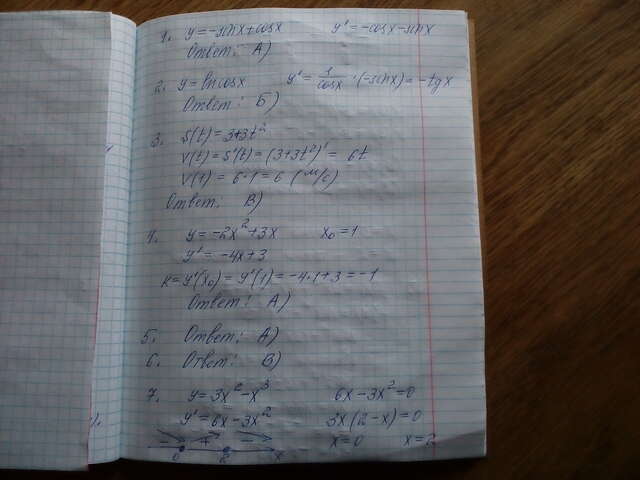 1. y = -sinx + cosx y' = -cosx - sinx
Ответ: А)
2. y = ln cosx y' = 1/cosx · (-sinx) = -tg x
Ответ: Б)
3. S(t) = 3+3t²
V(t) = S'(t) = (3+3t²)' = 6t
V(1) = 6·1 = 6 (м/с)
Ответ: В)
4. y = -2x² + 3x x₀ = 1
y' = -4x + 3
k = y'(x₀) = y'(1) = -4·1 + 3 = -1
Ответ: А)
5. Ответ: А)
6. Ответ: В)
7. y = 3x² - x³ 6x - 3x² = 0
y' = 6x - 3x² 3x(2 - x) = 0
- + - x = 0 x = 2
0 2 x